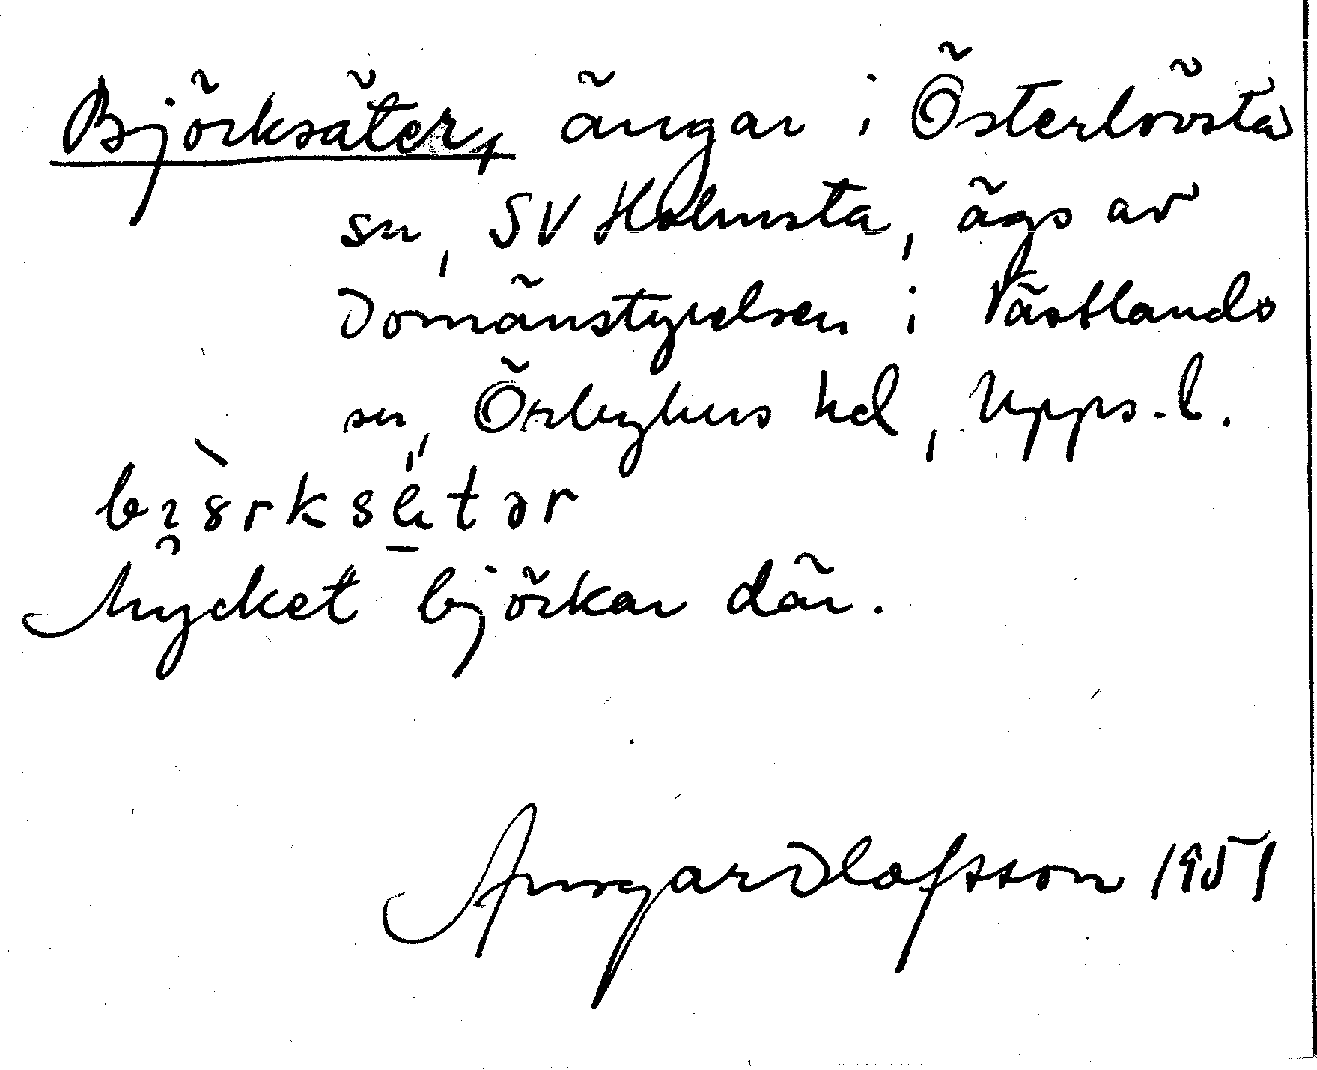 Björksäter, ängar i Österlövsta
sn, SV Holmsta, ägs av
Domänstyrelsen i Västlands
sn, Örbyhus hd, Upps. l.
Mycket björkar där.
Ansgar Olofsson 1951